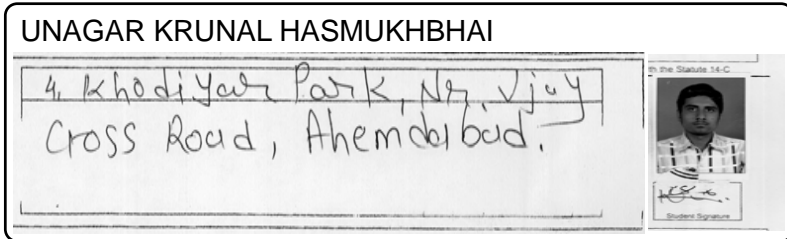 UNAGAR KRUNAL HASMUKHBHAI
4, Khodiyar Park, Nr. Vijay
Cross Road, Ahemdabad.
th the Statute 14-C
Student Signature